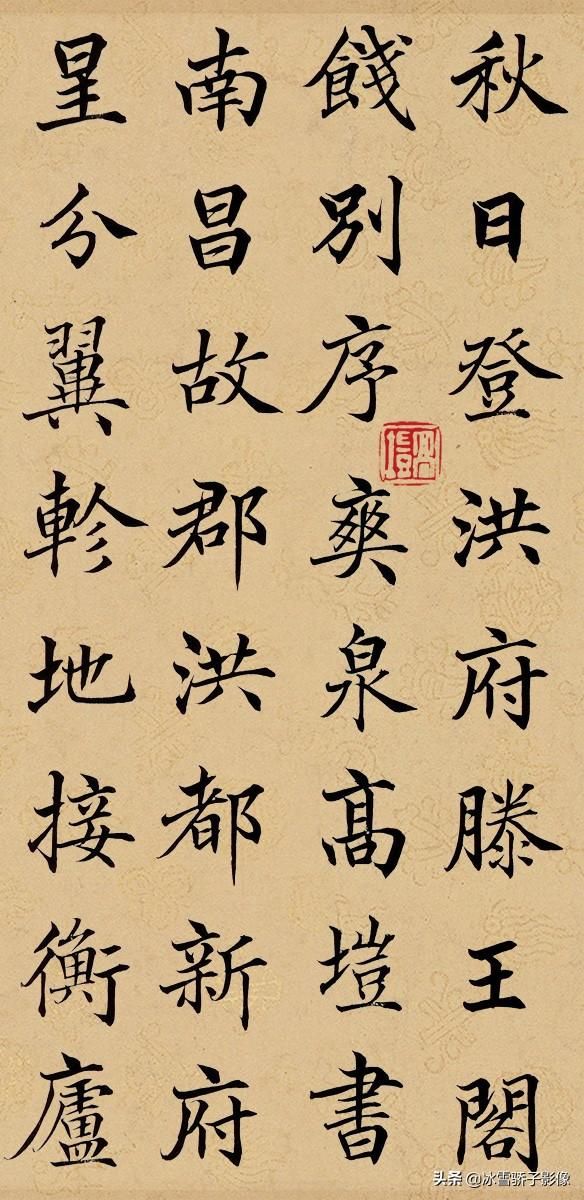 秋日登洪府滕王閣
餞別序爽泉高塏書
南昌故郡洪都新府
星分翼軫地接衡廬
头条 @冰雪骄子影像